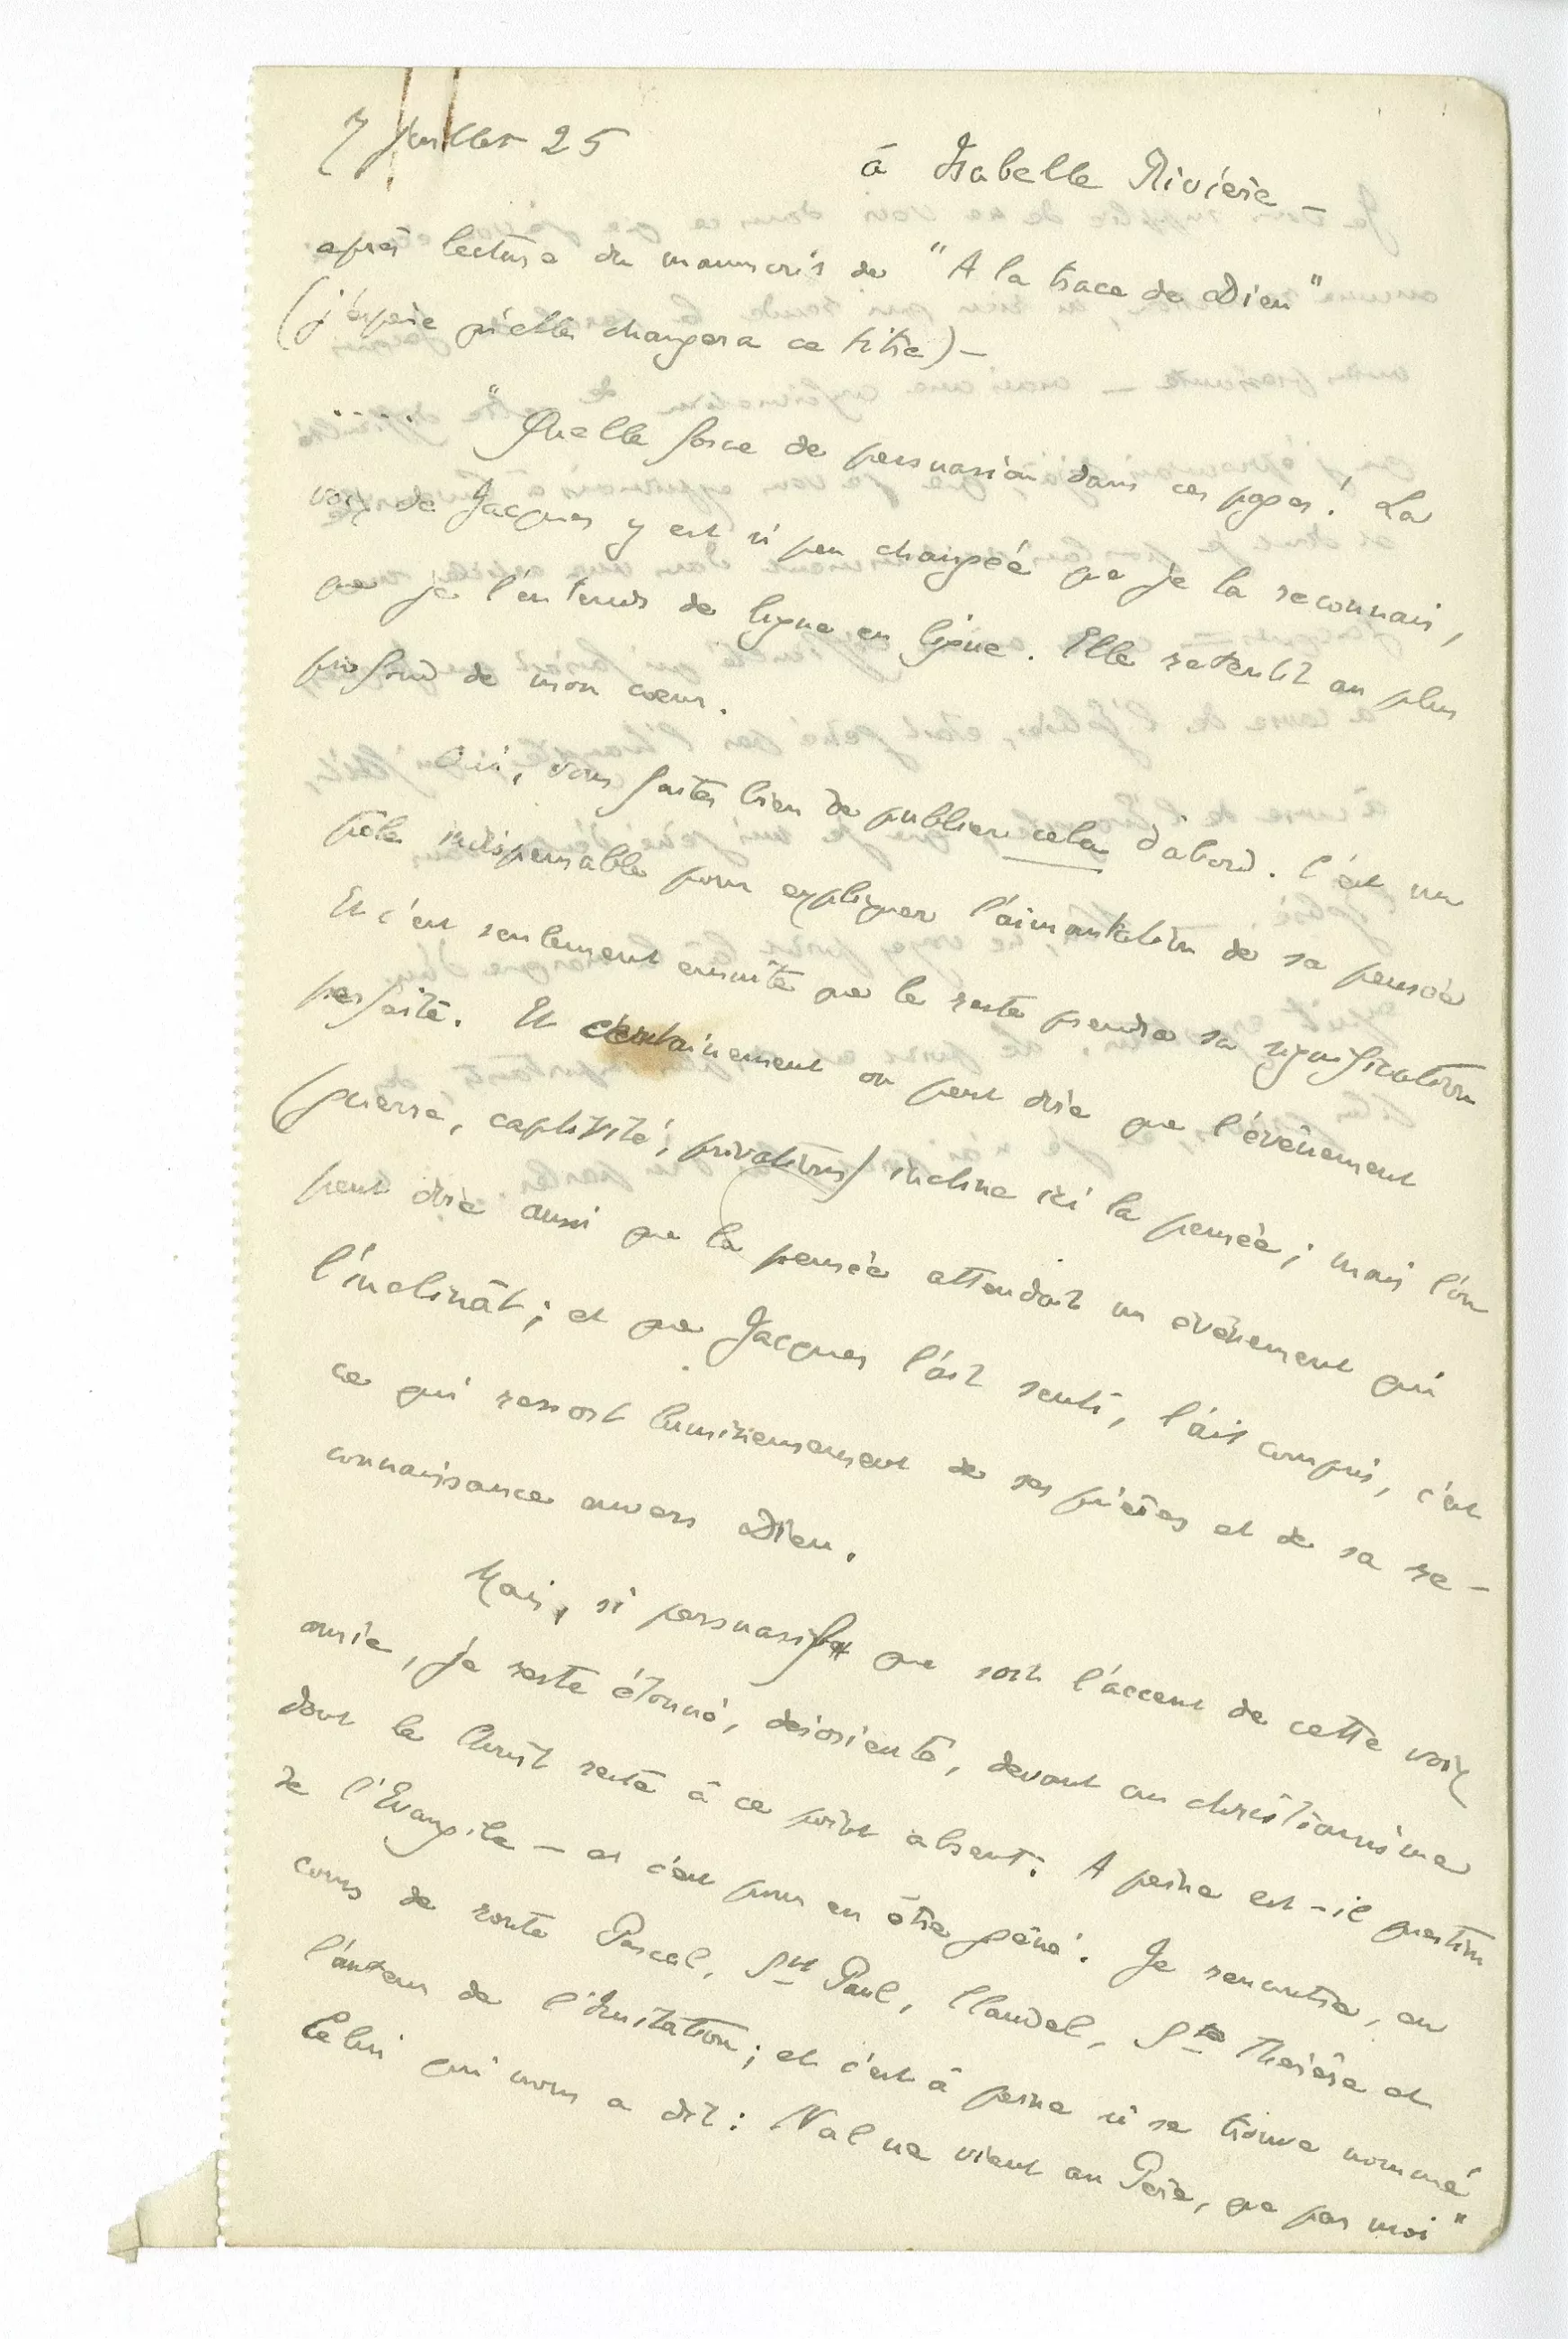 7 Juillet 25
à Isabelle Rivière –
après lecture du manuscrit de "A la trace de Dieu"
(j'espère qu'elle changera ce titre) –
..... "Quelle force de persuasion dans ces pages! La
voix de Jacques y est si peu changée que je la reconnais,
que je l'entends de ligne en ligne. Elle retentit au plus
profond de mon cœur.
Oui, vous faites bien de publier cela d'abord. C'est un
pôle indispensable pour expliquer l'aimantation de sa pensée
Et c'est seulement ensuite que le reste prendra sa signification
parfaite. Et certainement on peut dire que l'événement
(guerre, captivité, privations) incline ici la pensée; mais l'on
peut dire aussi que la pensée attendait un événement qui
l'inclinât; et que Jacques l'ait senti, l'ait compris, c'est
ce qui ressort lumineusement de ses prières et de sa re-
connaissance envers Dieu.
Mais, si persuasif que soit l'accent de cette voix
amie, je reste étonné, désorienté, devant un christianisme
dont le Christ reste à ce point absent. A peine est-il question
de l'Evangile – et c'est pour en être gêné. Je rencontre, en
cours de route Pascal, St Paul, Claudel, Ste Thérèse et
l'auteur de l'Imitation; et c'est à peine si se trouve nommé
Celui qui nous a dit: Nul ne vient au Père, que par moi"